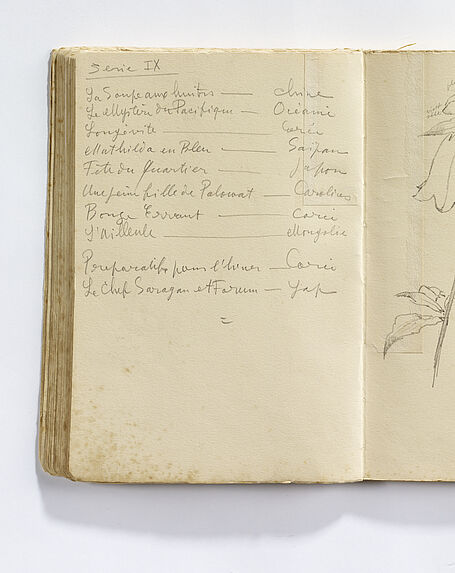 Serie IX
La Soupe aux huitres — Chine
Le Mystère du Pacifique — Océanie
Longévité — Corée
Mathilda en Bleu — Saipan
Fête du Quartier — Japon
Une jeune fille de Palowat — Carolines
Bonze Errant — Corée
L'aïeule — Mongolie
Preparatifs pour l'hiver — Corée
Le Chef Saragan et Forum — Yap
=